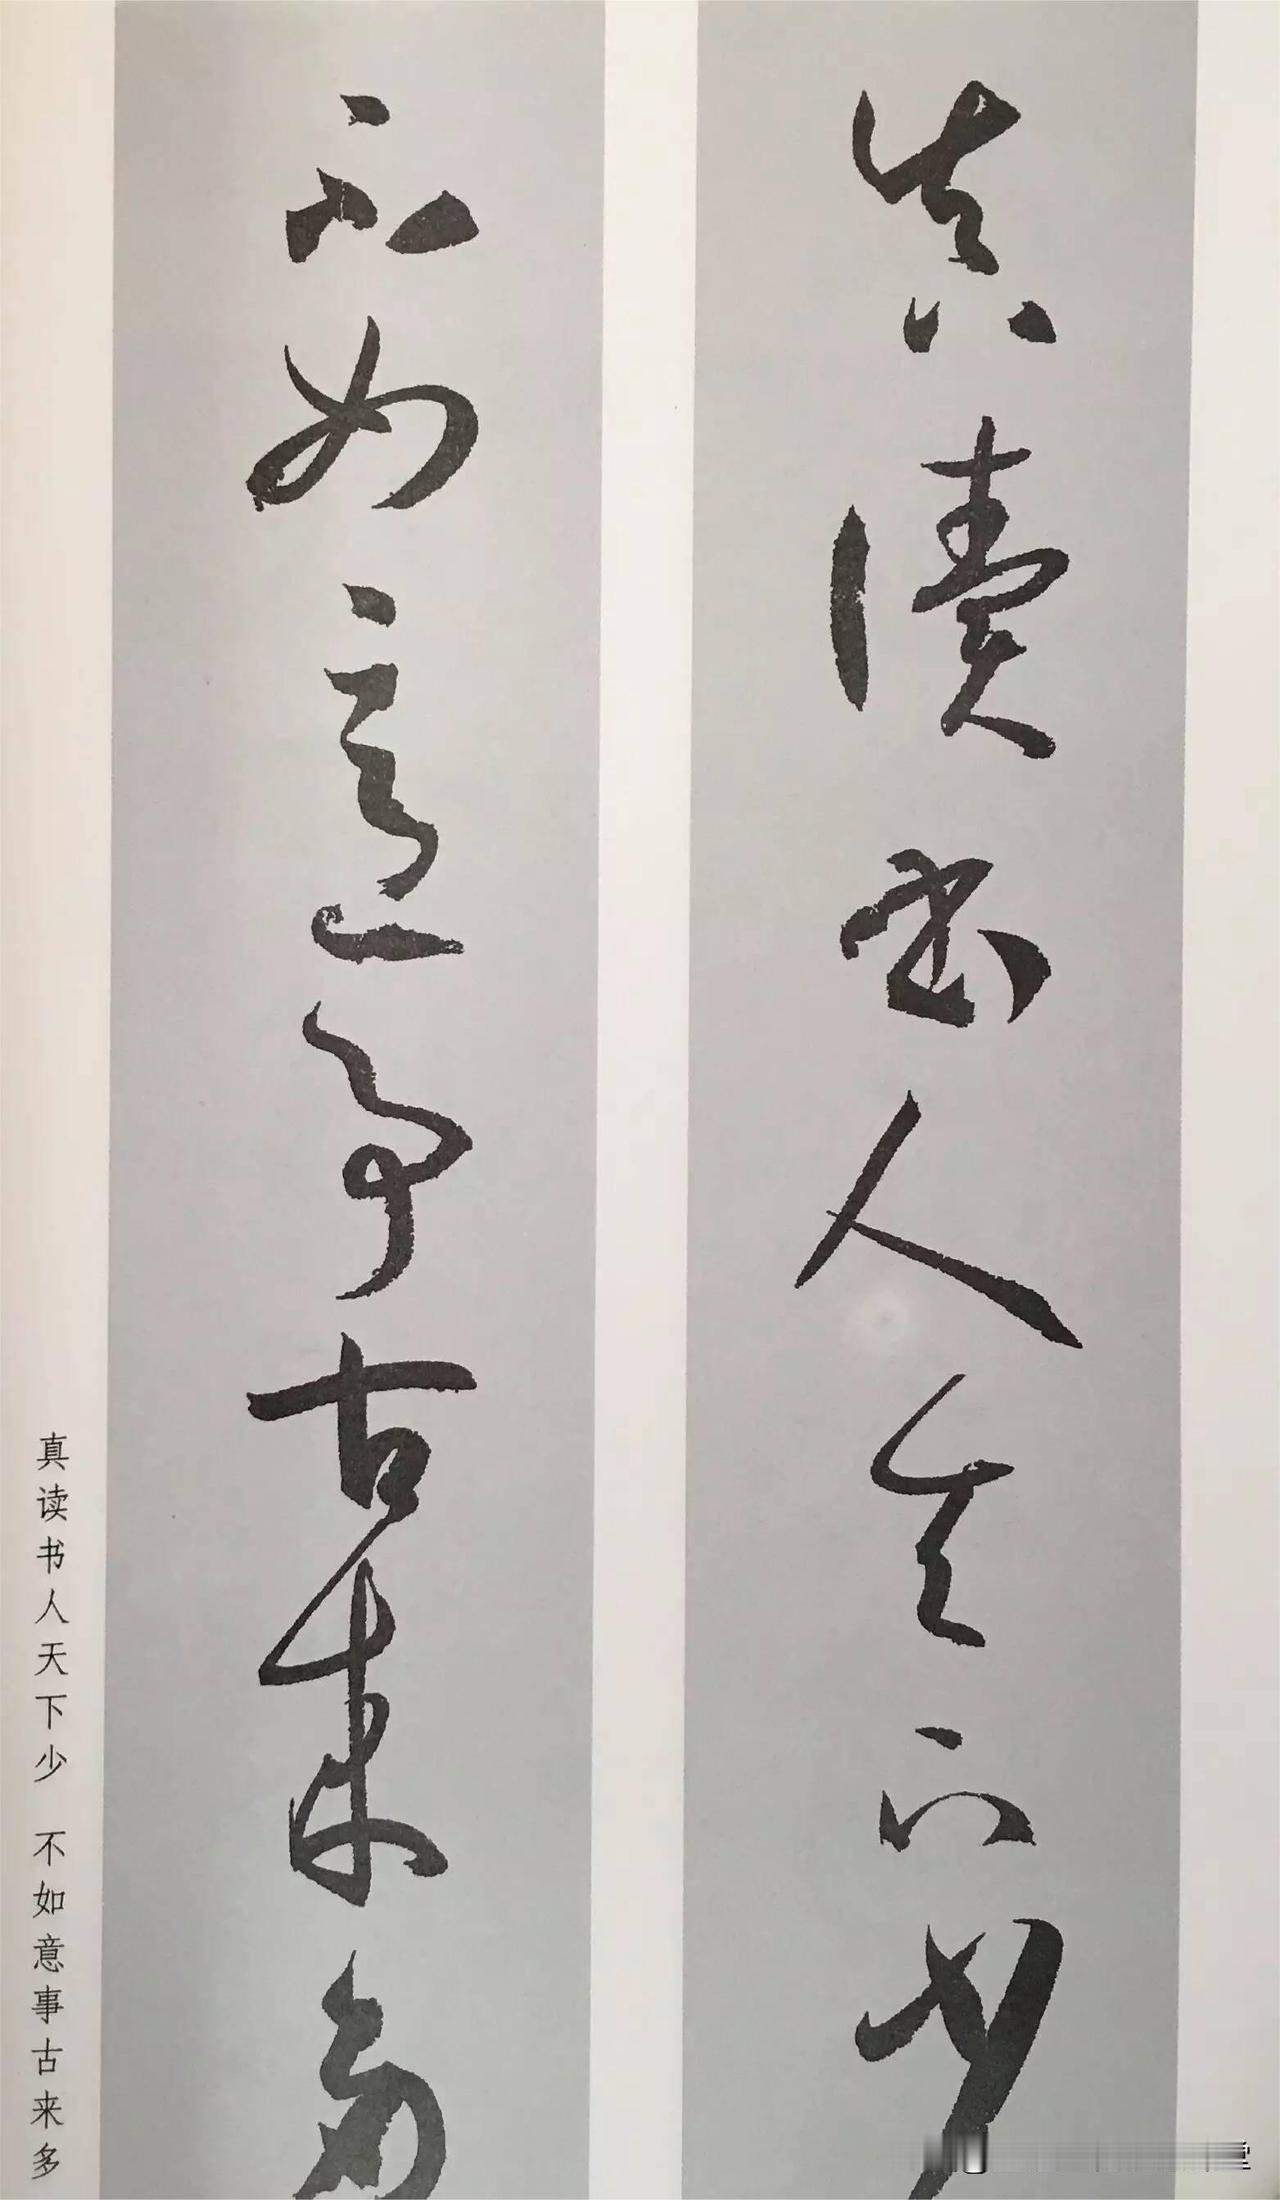 真讀书人天下少
不如意事古来多
真读书人天下少 不如意事古来多